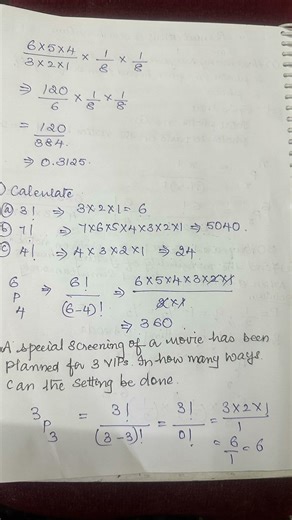 6×5×4/3×2×1 × 1/8 × 1/8
⇒ 120/6 × 1/8 × 1/8
= 120/384.
⇒ 0.3125.
) Calculate
(a) 3! ⇒ 3×2×1 = 6
(b) 7! ⇒ 7×6×5×4×3×2×1 ⇒ 5040.
(c) 4! ⇒ 4×3×2×1 ⇒ 24
6P4 ⇒ 6!/(6-4)! ⇒ 6×5×4×3×2×1/2×1
⇒ 360.
A special screening of a movie has been
planned for 3 VIPs. In how many ways
can the setting be done.
3P3 = 3!/(3-3)! = 3!/0! = 3×2×1/1
= 6/1 = 6